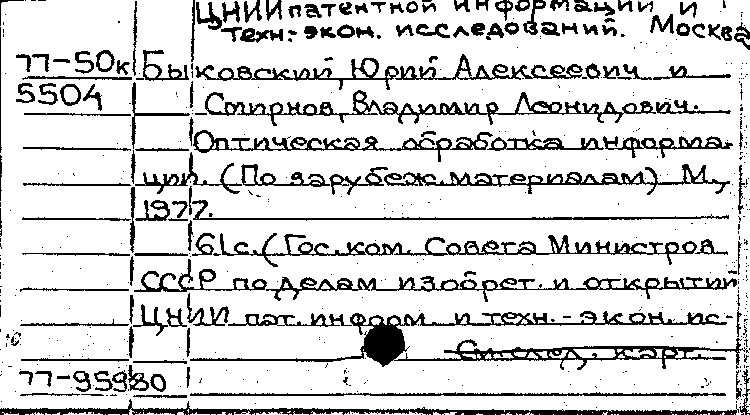 ЦНИИ патентной информации и
техн.-экон. исследований. Москва
77-50к Быковский, Юрий Алексеевич и
5504 Смирнов, Владимир Леонидович.
Оптическая обработка информа-
ции. (По зарубеж. материалам) М.,
1977.
61с. (Гос. ком. Совета Министров
СССР по делам изобрет. и открытий
ЦНИИ пат. информ. и техн.-экон. ис-
след. карт.
77-95980